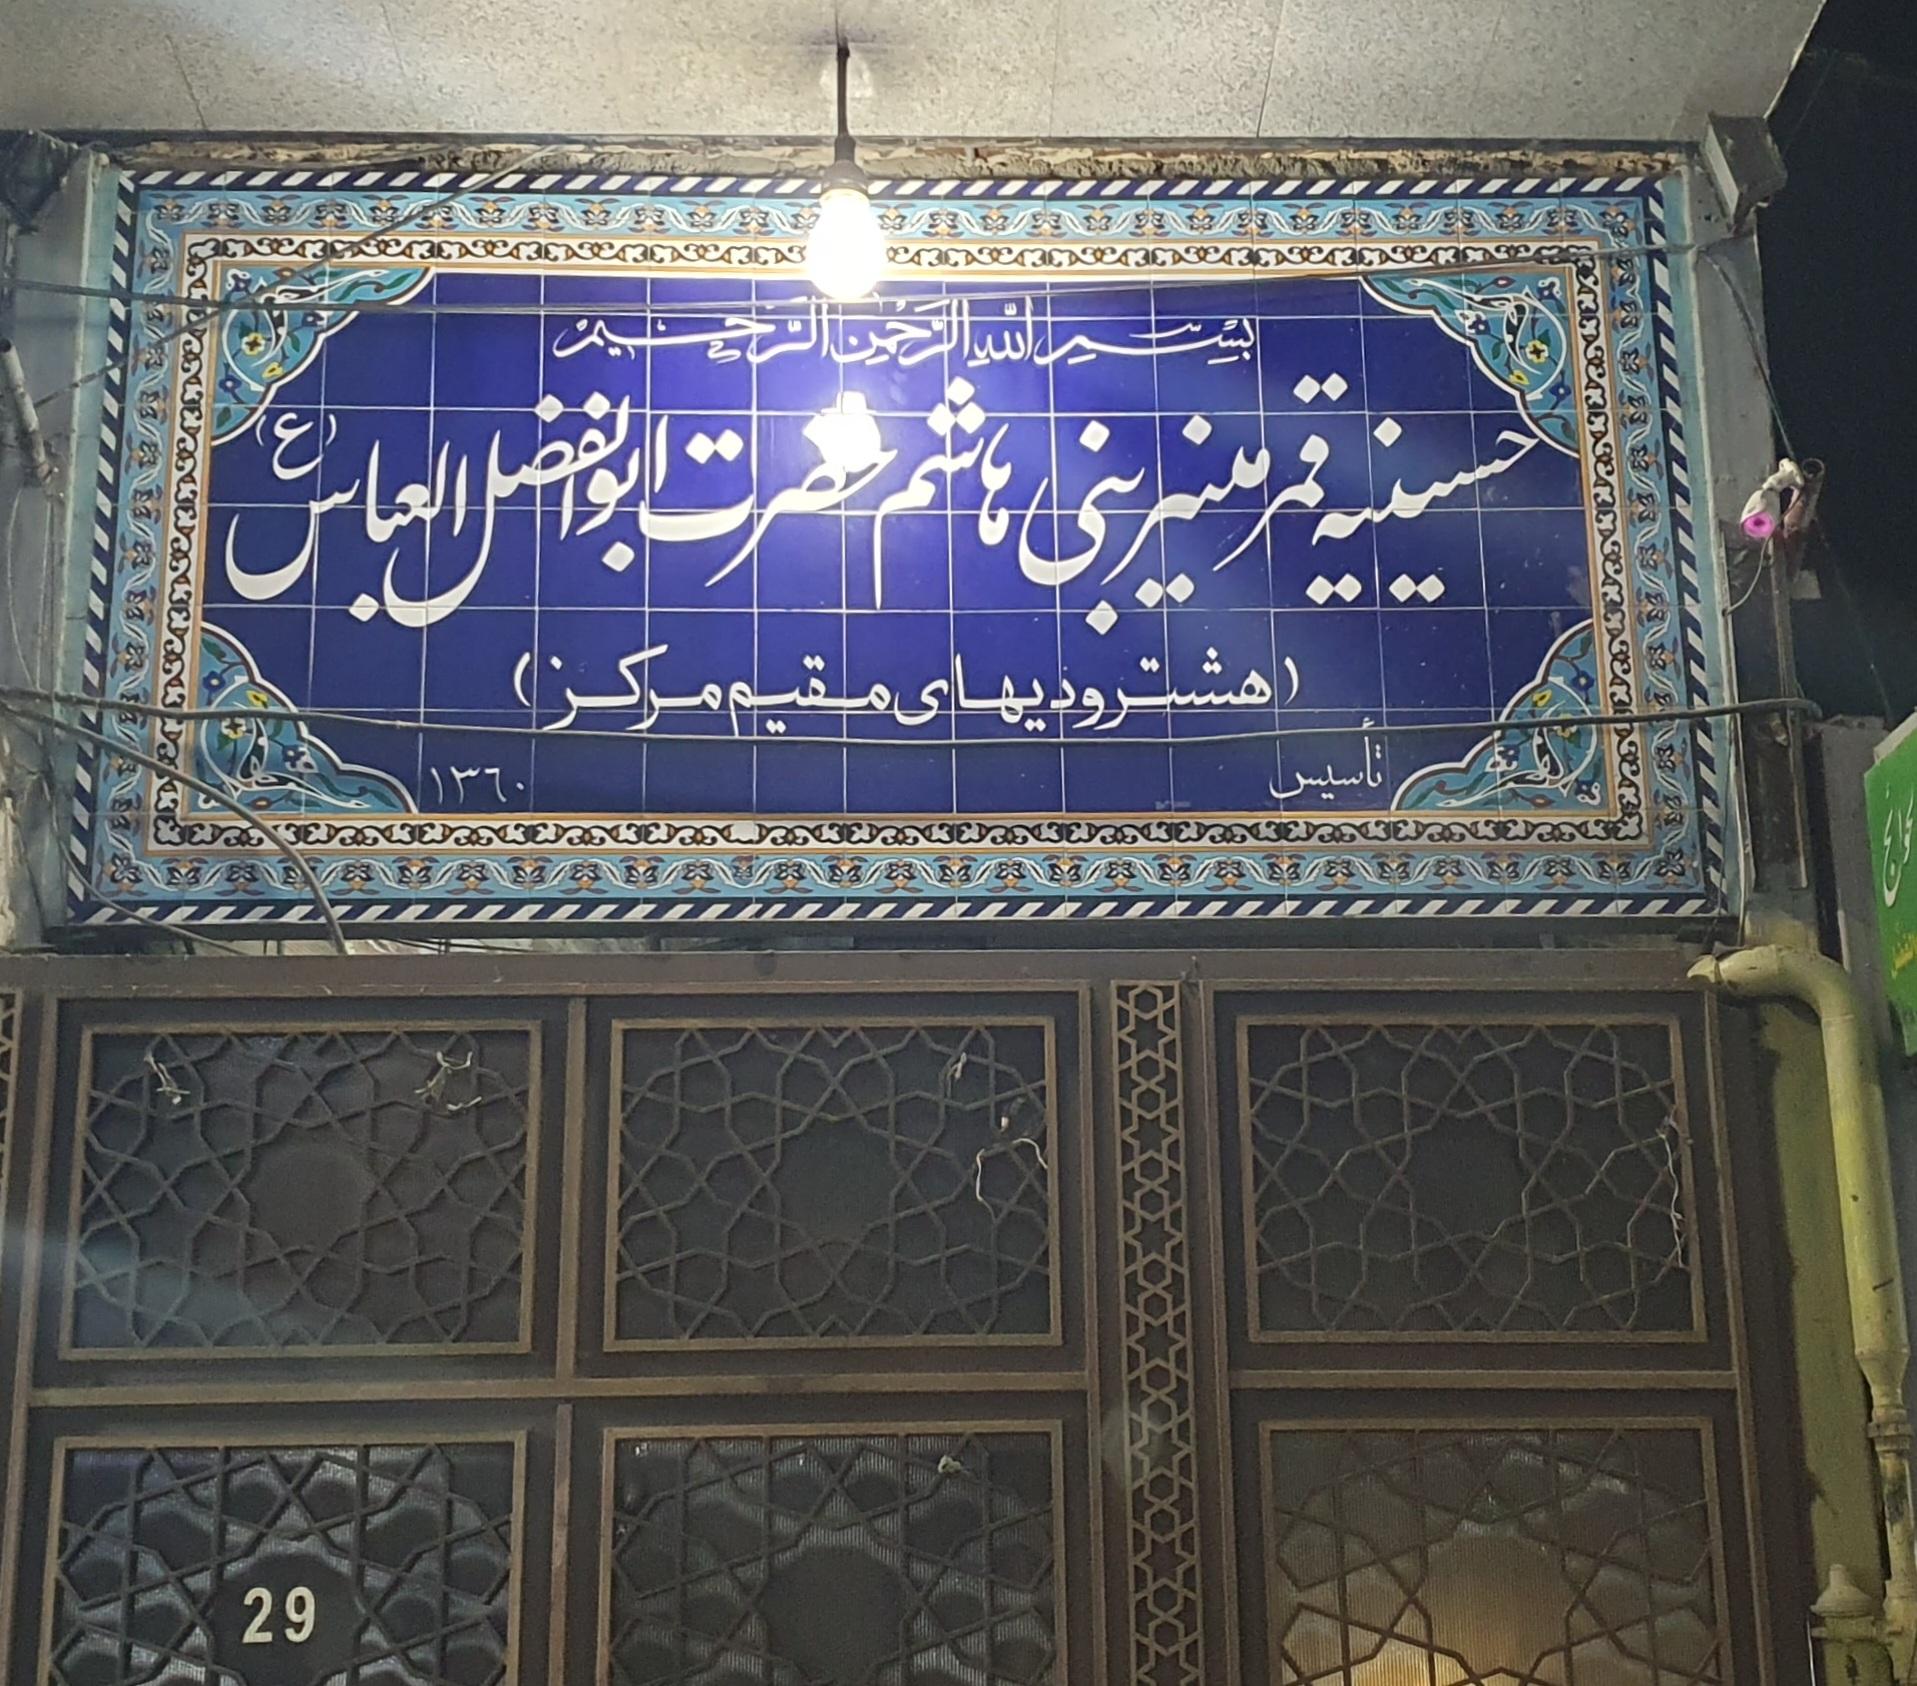 بسم الله الرحمن الرحیم
حسینیه قمر منیر بنی هاشم حضرت ابوالفضل العباس (ع)
(هشترودیهای مقیم مرکز)
تأسیس ۱۳۶۰
29